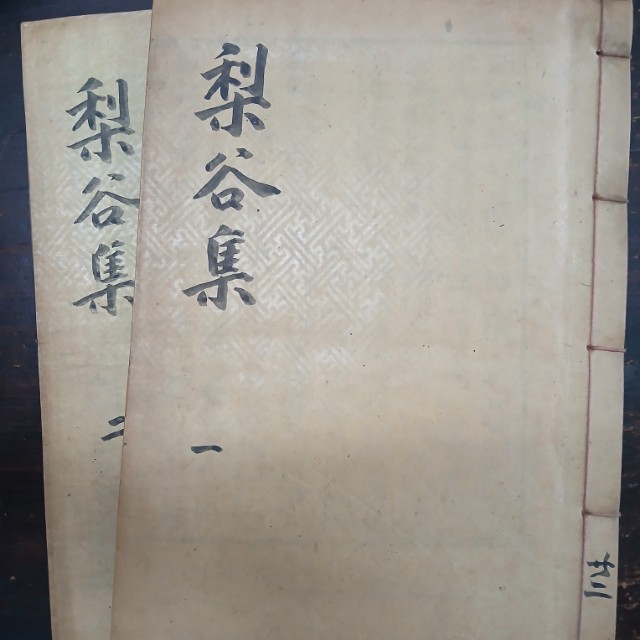 梨谷集
一
梨谷集
二